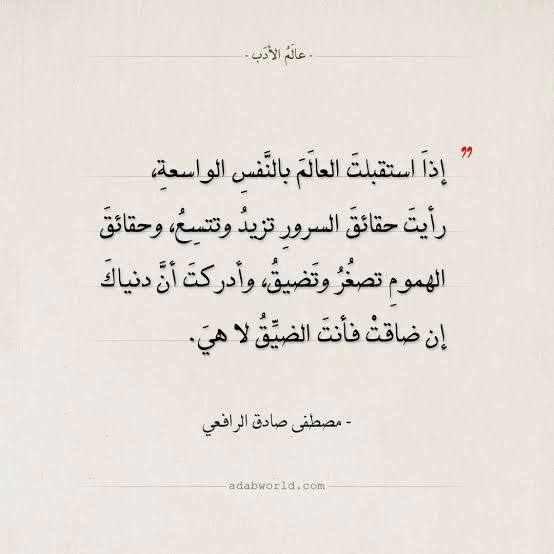 - عالَمُ الأدَب -
”
إذاَ استقبلتَ العالَمَ بالنَّفسِ الواسعةِ،
رأيتَ حقائقَ السرورِ تزيدُ وتتسِعُ، وحقائقَ
الهمومِ تصغُرُ وتَضيقُ، وأدركتَ أنَّ دنياكَ
إن ضاقتْ فأنتَ الضيِّقُ لا هيَ.
- مصطفى صادق الرافعي
adabworld.com